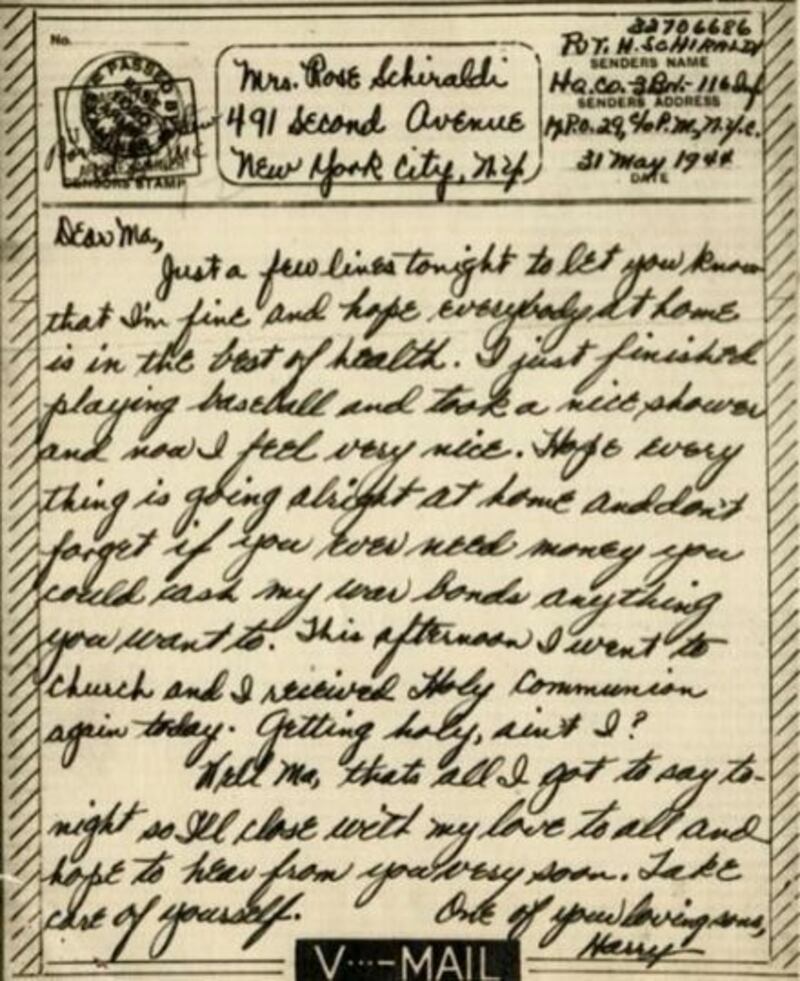 No.
PASSED BY
BASE
CENSORS STAMP
Mrs. Rose Schiraldi
491 Second Avenue
New York City, N.Y.
32706686
Pvt. H. SCHIRALDI
SENDERS NAME
Hq. Co. 3 Bn. - 116 Inf
SENDERS ADDRESS
A.P.O. 29, c/o P.M., N.Y.C.
31 May 1944
DATE
Dear Ma,
Just a few lines tonight to let you know
that I'm fine and hope everybody at home
is in the best of health. I just finished
playing baseball and took a nice shower
and now I feel very nice. Hope every
thing is going alright at home and don't
forget if you ever need money you
could cash my war bonds anything
you want to. This afternoon I went to
church and I recieved Holy Communion
again today. Getting holy, ain't I?
Well Ma, thats all I got to say to-
night so I'll close with my love to all and
hope to hear from you very soon. Take
care of yourself. One of your loving sons,
Harry
V···—MAIL